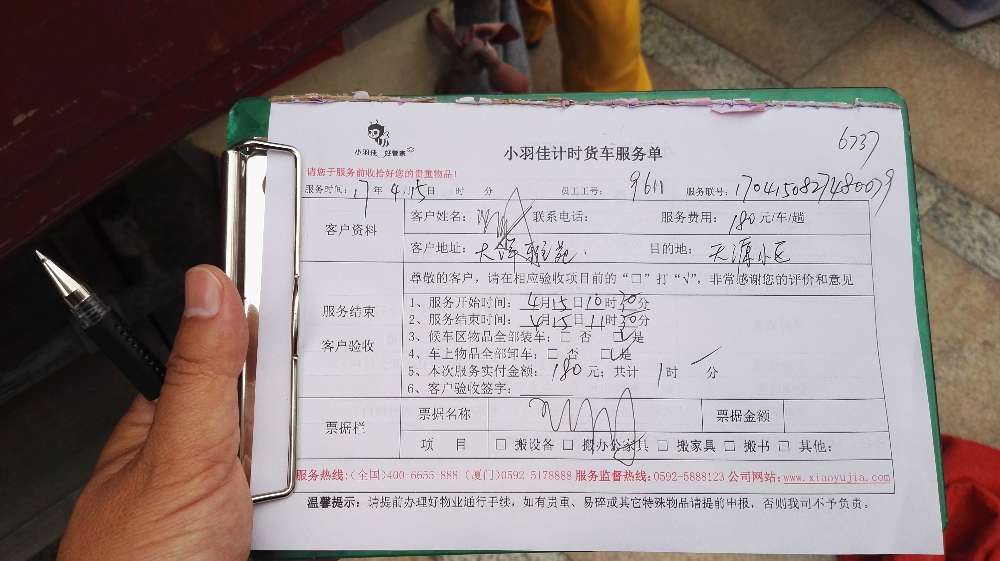 6737
小羽佳 好管家
小羽佳计时货车服务单
请您于服务前收拾好您的贵重物品!
服务时间: 17年4月15日 时 分 员工工号: 9611 服务联号: 1704150827480079
客户资料
客户姓名: 联系电话: 服务费用: 180元/车/趟
客户地址: 大洋雅苑 目的地: 天源小区
服务结束
客户验收
尊敬的客户,请在相应验收项目前的“□”打“√”,非常感谢您的评价和意见
1、服务开始时间: 4月15日10时30分
2、服务结束时间: 4月15日11时30分
3、候车区物品全部装车: □ 否 □ 是
4、车上物品全部卸车: □ 否 □ 是
5、本次服务实付金额: 180元; 共计 1时 分
6、客户验收签字:
票据栏
票据名称 票据金额
项 目 □ 搬设备 □ 搬办公家具 □ 搬家具 □ 搬书 □ 其他:
服务热线:(全国)400-6655-888 (厦门)0592-5178888 服务监督热线:0592-5888123 公司网站:www.xiaoyujia.com
温馨提示: 请提前办理好物业通行手续,如有贵重、易碎或其它特殊物品请提前申报,否则我司不予负责。